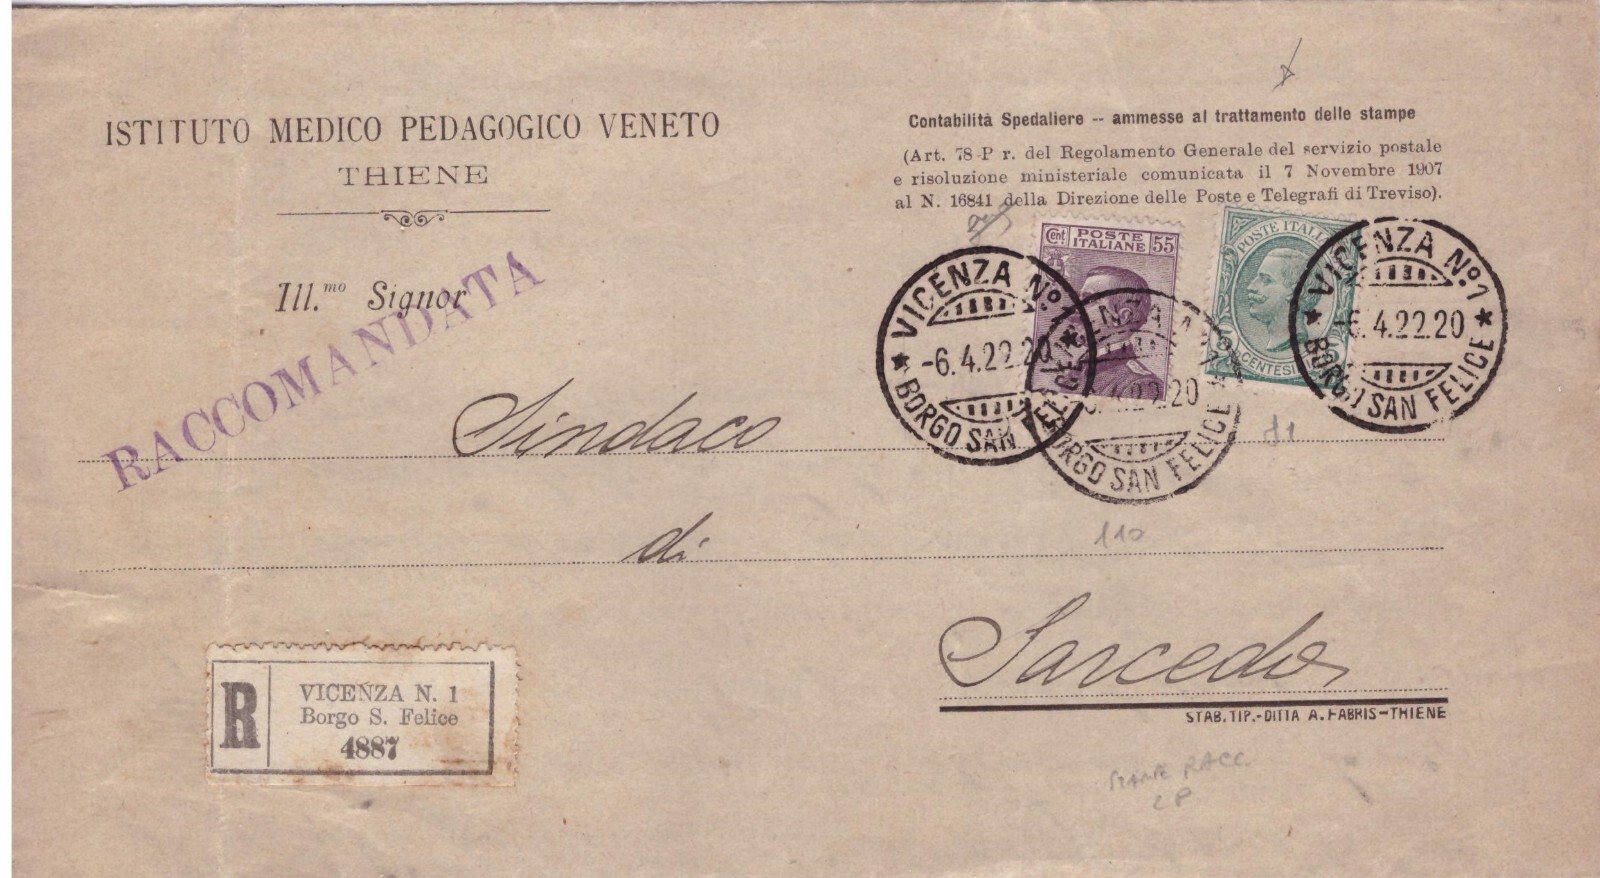 ISTITUTO MEDICO PEDAGOGICO VENETO
THIENE
Ill.mo Signor
RACCOMANDATA
Sindaco
di
Sarcedo
Contabilità Spedaliere -- ammesse al trattamento delle stampe
(Art. 78-P r. del Regolamento Generale del servizio postale
e risoluzione ministeriale comunicata il 7 Novembre 1907
al N. 16841 della Direzione delle Poste e Telegrafi di Treviso).
Cent. POSTE ITALIANE 55
POSTE ITAL
CENTESI
VICENZA No. 1
-6.4.22.20
BORGO SAN FELICE
ENZA
.4.22.20
ORGO SAN FELICE
VICENZA No. 1
-6.4.22.20
BORGO SAN FELICE
110
STAB. TIP.-DITTA A. FABRIS-THIENE
R
VICENZA N. 1
Borgo S. Felice
4887
STAMPE RACC.
2 P